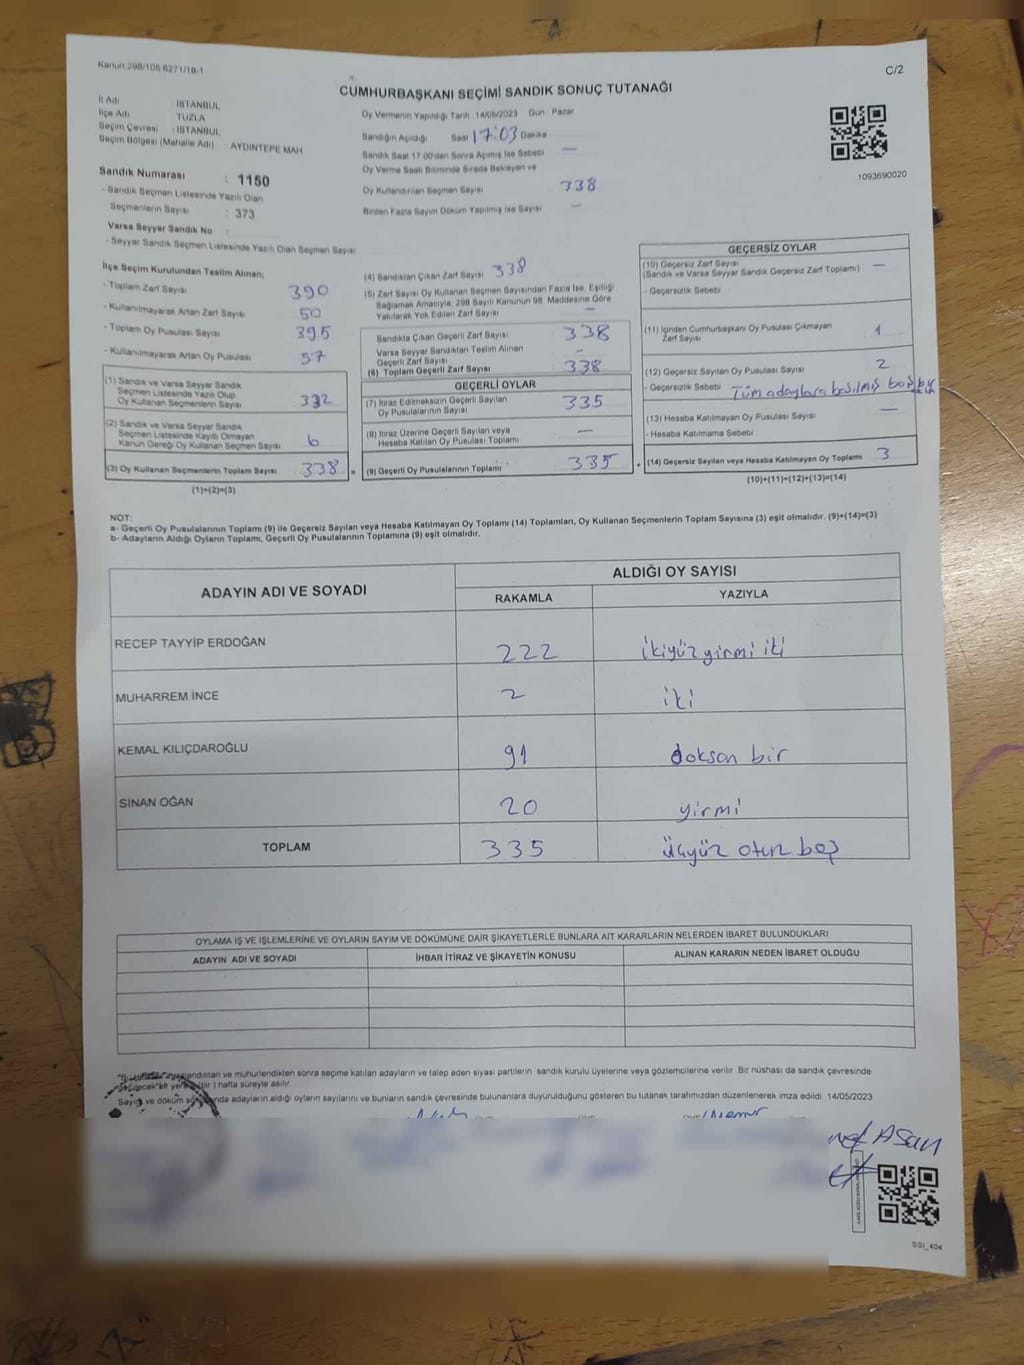 Kanun:298/105.6271/18-1
C/2
CUMHURBAŞKANI SEÇİMİ SANDIK SONUÇ TUTANAĞI
İl Adı : İSTANBUL
İlçe Adı : TUZLA
Seçim Çevresi : İSTANBUL
Seçim Bölgesi (Mahalle Adı) : AYDINTEPE MAH
Sandık Numarası : 1150
- Sandık Seçmen Listesinde Yazılı Olan
Seçmenlerin Sayısı : 373
Varsa Seyyar Sandık No :
- Seyyar Sandık Seçmen Listesinde Yazılı Olan Seçmen Sayısı
Oy Vermenin Yapıldığı Tarih : 14/05/2023 Gün : Pazar
Sandığın Açıldığı Saat 17:03 Dakika
Sandık Saat 17.00'den Sonra Açılmış İse Sebebi —
Oy Verme Saati Bitiminde Sırada Bekleyen ve
Oy Kullandırılan Seçmen Sayısı 338
Birden Fazla Sayım Döküm Yapılmış İse Sayısı —
1093690020
İlçe Seçim Kurulundan Teslim Alınan;
- Toplam Zarf Sayısı 390
- Kullanılmayarak Artan Zarf Sayısı 50
- Toplam Oy Pusulası Sayısı 395
- Kullanılmayarak Artan Oy Pusulası 57
(1) Sandık ve Varsa Seyyar Sandık
Seçmen Listesinde Yazılı Olup
Oy Kullanan Seçmenlerin Sayısı 332
(2) Sandık ve Varsa Seyyar Sandık
Seçmen Listesinde Kayıtlı Olmayan
Kanun Gereği Oy Kullanan Seçmen Sayısı 6
(3) Oy Kullanan Seçmenlerin Toplam Sayısı 338 =
(1)+(2)=(3)
(4) Sandıktan Çıkan Zarf Sayısı 338
(5) Zarf Sayısı Oy Kullanan Seçmen Sayısından Fazla İse, Eşitliği
Sağlamak Amacıyla, 298 Sayılı Kanunun 98. Maddesine Göre
Yakılarak Yok Edilen Zarf Sayısı —
Sandıkta Çıkan Geçerli Zarf Sayısı 338
Varsa Seyyar Sandıktan Teslim Alınan
Geçerli Zarf Sayısı -
(6) Toplam Geçerli Zarf Sayısı 338
GEÇERLİ OYLAR
(7) İtiraz Edilmeksizin Geçerli Sayılan
Oy Pusulalarının Sayısı 335
(8) İtiraz Üzerine Geçerli Sayılan veya
Hesaba Katılan Oy Pusulası Toplamı —
(9) Geçerli Oy Pusulalarının Toplamı 335 +
GEÇERSİZ OYLAR
(10) Geçersiz Zarf Sayısı —
(Sandık ve Varsa Seyyar Sandık Geçersiz Zarf Toplamı)
- Geçersizlik Sebebi
(11) İçinden Cumhurbaşkanı Oy Pusulası Çıkmayan
Zarf Sayısı 1
(12) Geçersiz Sayılan Oy Pusulası Sayısı 2
- Geçersizlik Sebebi Tüm adaylara basılmış boş
(13) Hesaba Katılmayan Oy Pusulası Sayısı —
- Hesaba Katılmama Sebebi
(14) Geçersiz Sayılan veya Hesaba Katılmayan Oy Toplamı 3
(10)+(11)+(12)+(13)=(14)
NOT:
a- Geçerli Oy Pusulalarının Toplamı (9) ile Geçersiz Sayılan veya Hesaba Katılmayan Oy Toplamı (14) Toplamları, Oy Kullanan Seçmenlerin Toplam Sayısına (3) eşit olmalıdır. (9)+(14)=(3)
b- Adayların Aldığı Oyların Toplamı, Geçerli Oy Pusulalarının Toplamına (9) eşit olmalıdır.
ADAYIN ADI VE SOYADI
ALDIĞI OY SAYISI
RAKAMLA YAZIYLA
RECEP TAYYİP ERDOĞAN 222 ikiyüzyirmi iki
MUHARREM İNCE 2 iki
KEMAL KILIÇDAROĞLU 91 doksan bir
SİNAN OĞAN 20 yirmi
TOPLAM 335 üçyüz otuz beş
OYLAMA İŞ VE İŞLEMLERİNE VE OYLARIN SAYIM VE DÖKÜMÜNE DAİR ŞİKAYETLERLE BUNLARA AİT KARARLARIN NELERDEN İBARET BULUNDUKLARI
ADAYIN ADI VE SOYADI İHBAR İTİRAZ VE ŞİKAYETİN KONUSU ALINAN KARARIN NEDEN İBARET OLDUĞU
ve mühürlendikten sonra seçime katılan adayların ve talep eden siyasi partilerin sandık kurulu üyelerine veya gözlemcilerine verilir. Bir nüshası da sandık çevresinde
(bir) hafta süreyle asılır.
Sayım ve döküm adayların aldığı oyların sayılarını ve bunların sandık çevresinde bulunanlara duyurulduğunu gösteren bu tutanak tarafımızdan düzenlenerek imza edildi. 14/05/2023
Asan
SSI_404